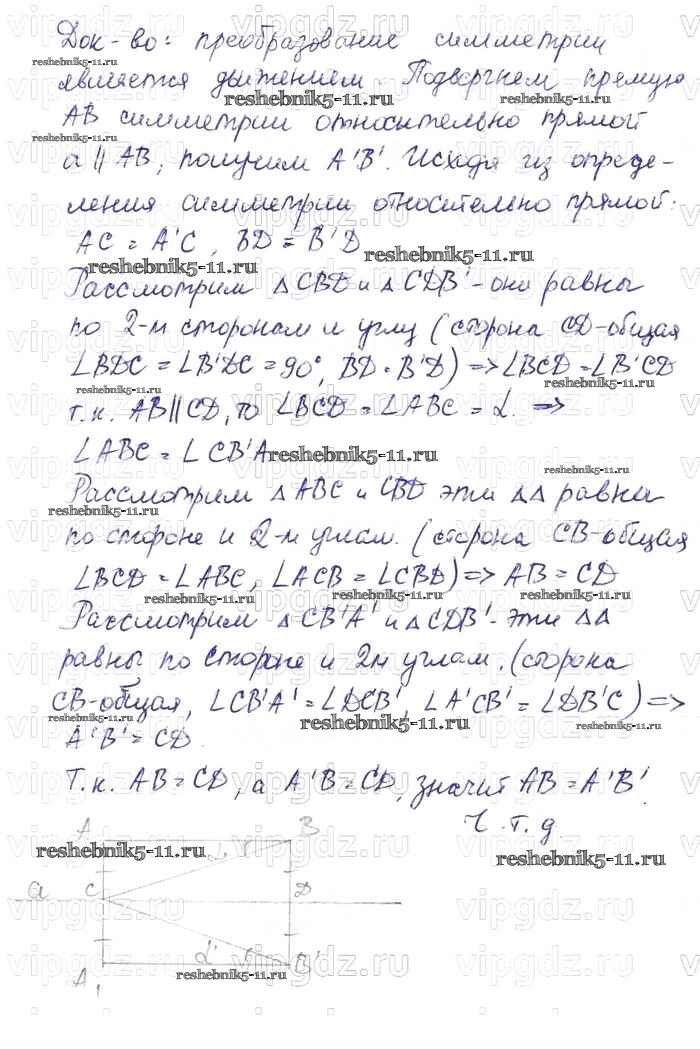 Док-во: преобразование симметрии
является движением. Подвергнем прямую
АВ симметрии относительно прямой
а || АВ, получим А'В'. Исходя из опреде-
ления симметрии относительно прямой:
АС = А'С, ВD = В'D
Рассмотрим Δ CBD и Δ CDB' - они равны
по 2-м сторонам и углу (сторона CD-общая
∠BDC = ∠B'DC = 90°, BD = B'D) => ∠BCD = ∠B'CD
т.к. AB || CD, то ∠BCD = ∠ABC = α. =>
∠ABC = ∠CB'A
Рассмотрим Δ ABC и CBD эти ΔΔ равны
по стороне и 2-м углам. (сторона CB-общая
∠BCD = ∠ABC, ∠ACB = ∠CBD) => AB = CD
Рассмотрим Δ CB'A' и Δ CDB' - эти ΔΔ
равны по стороне и 2м углам. (сторона
CB-общая, ∠CB'A' = ∠DCB', ∠A'CB' = ∠DB'C) =>
A'B' = CD.
Т.к. AB = CD, а A'B = CD, значит AB = A'B'.
Ч.т.д.
A B
a C D
A₁ α B'
reshebnik5-11.ru
vipgdz.ru